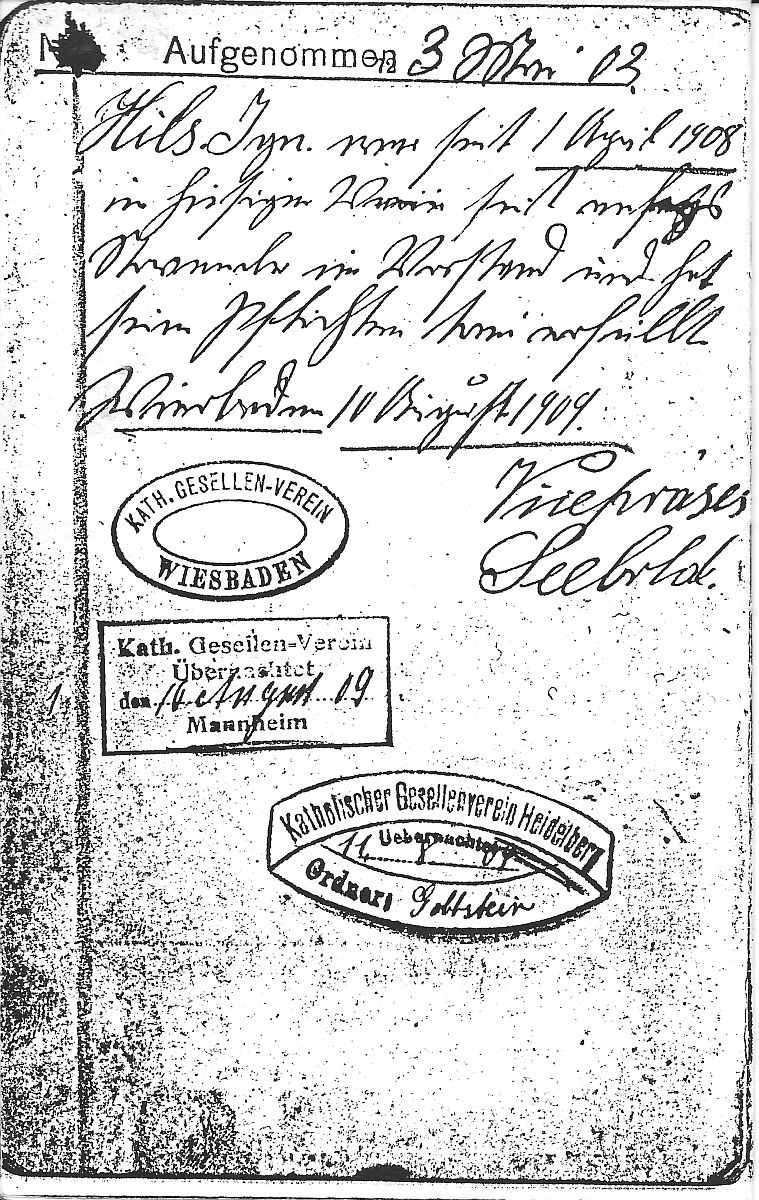 Aufgenommen 3 Mai 02
Hils. Ign. war seit 1 April 1908
in hiesigen Verein seit anfangs
im Vorstand und hat
seine Pflichten treu erfüllt
Wiesbaden 10 August 1909.
Vicepräses
Seebold.
KATH. GESELLEN-VEREIN
WIESBADEN
Kath. Gesellen-Verein
Übernachtet
den 10 August 09
Mannheim
1
Katholischer Gesellenverein Heidelberg
Uebernachtet
11. 8 09
Ordner: Gottstein